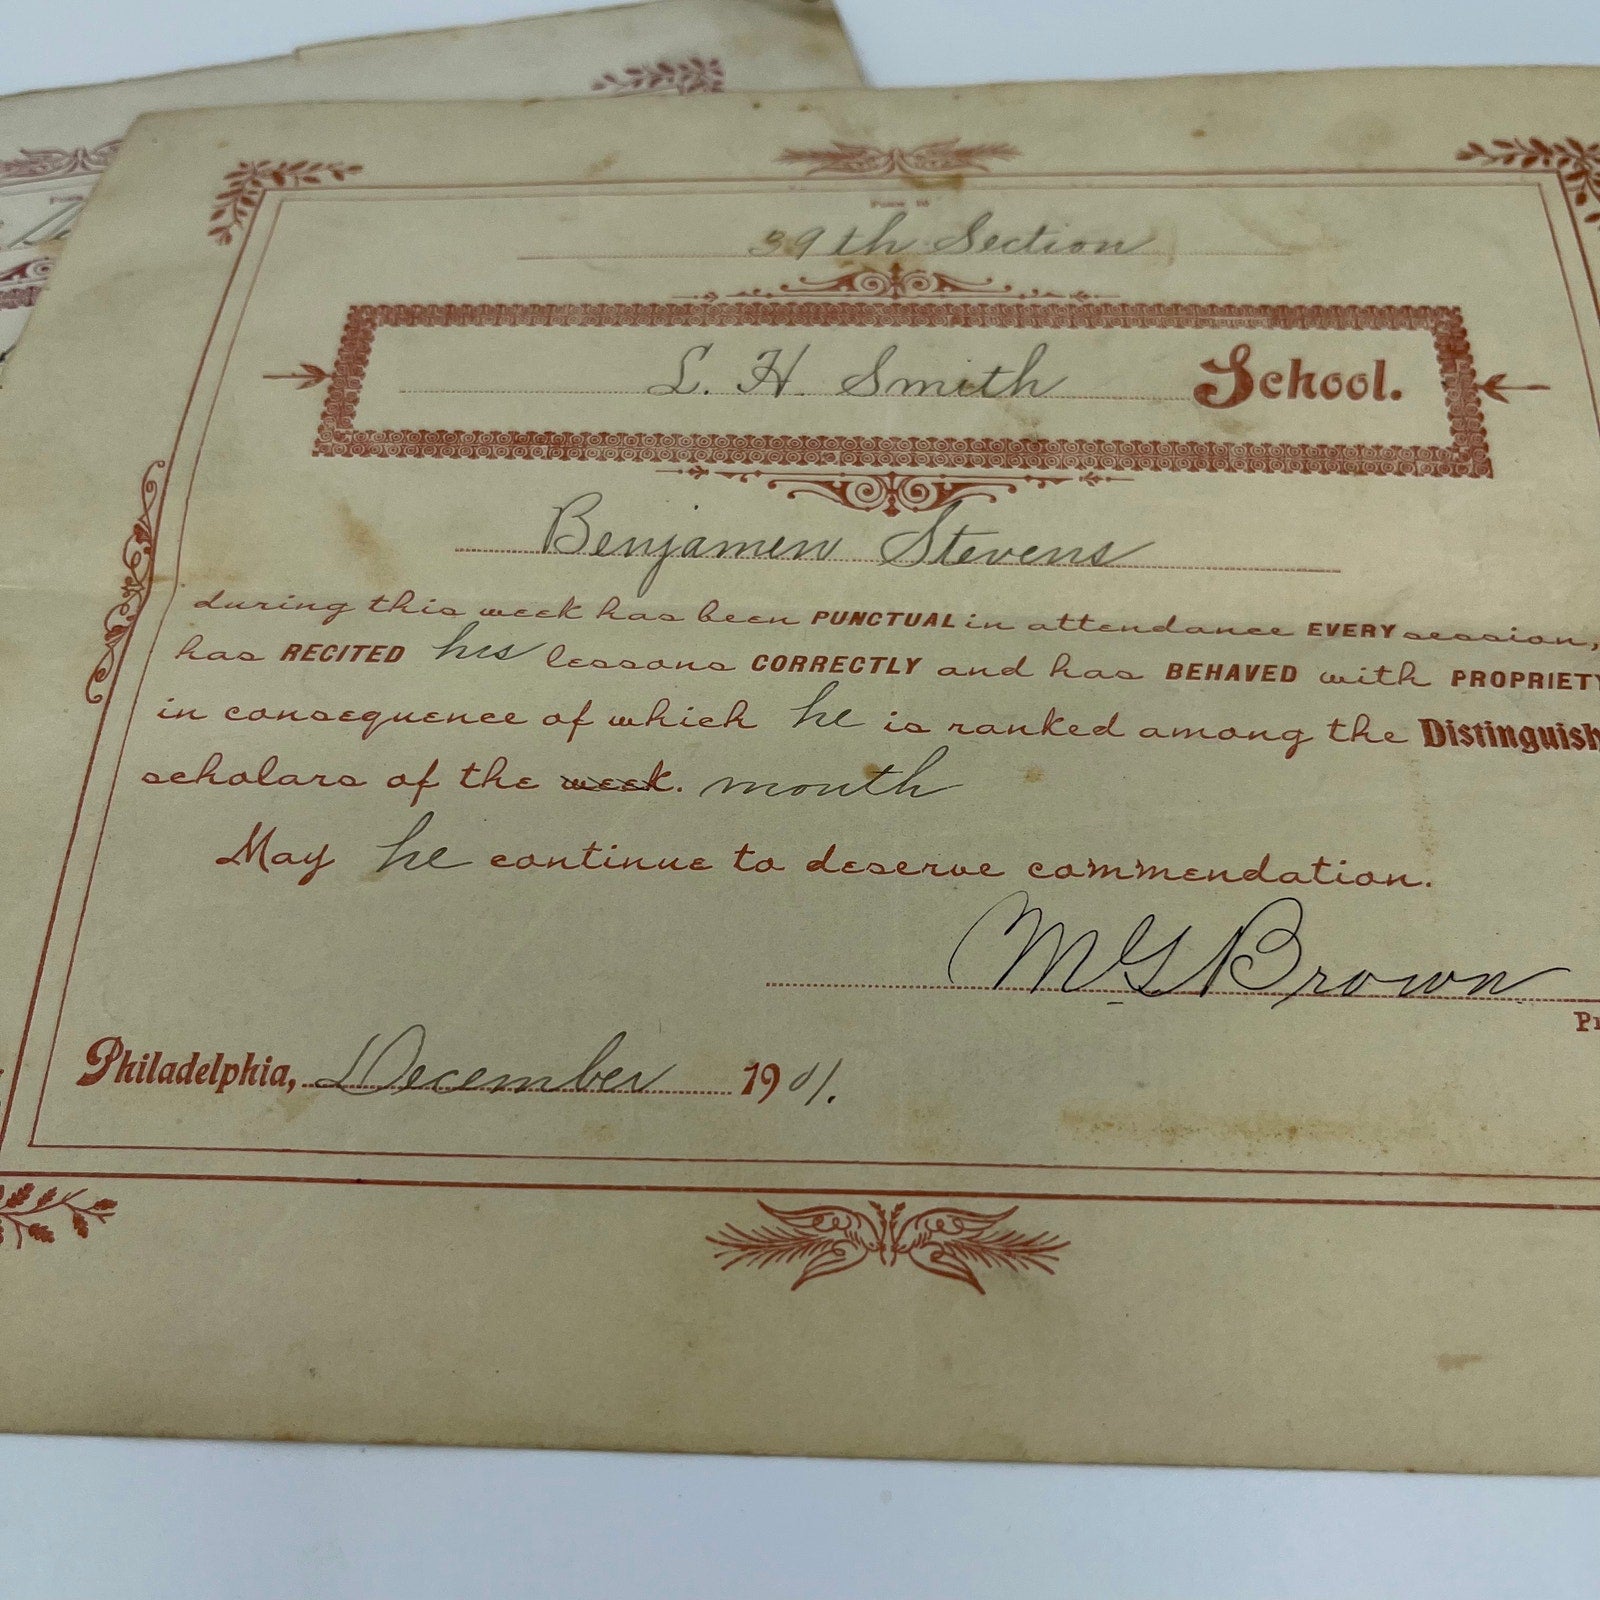 Form 16
39th Section
L. H. Smith School.
Benjamen Stevens
during this week has been PUNCTUAL in attendance EVERY session,
has RECITED his lessons CORRECTLY and has BEHAVED with PROPRIETY
in consequence of which he is ranked among the Distinguish
scholars of the week. month
May he continue to deserve commendation.
M G Brown
Philadelphia, December 1901.